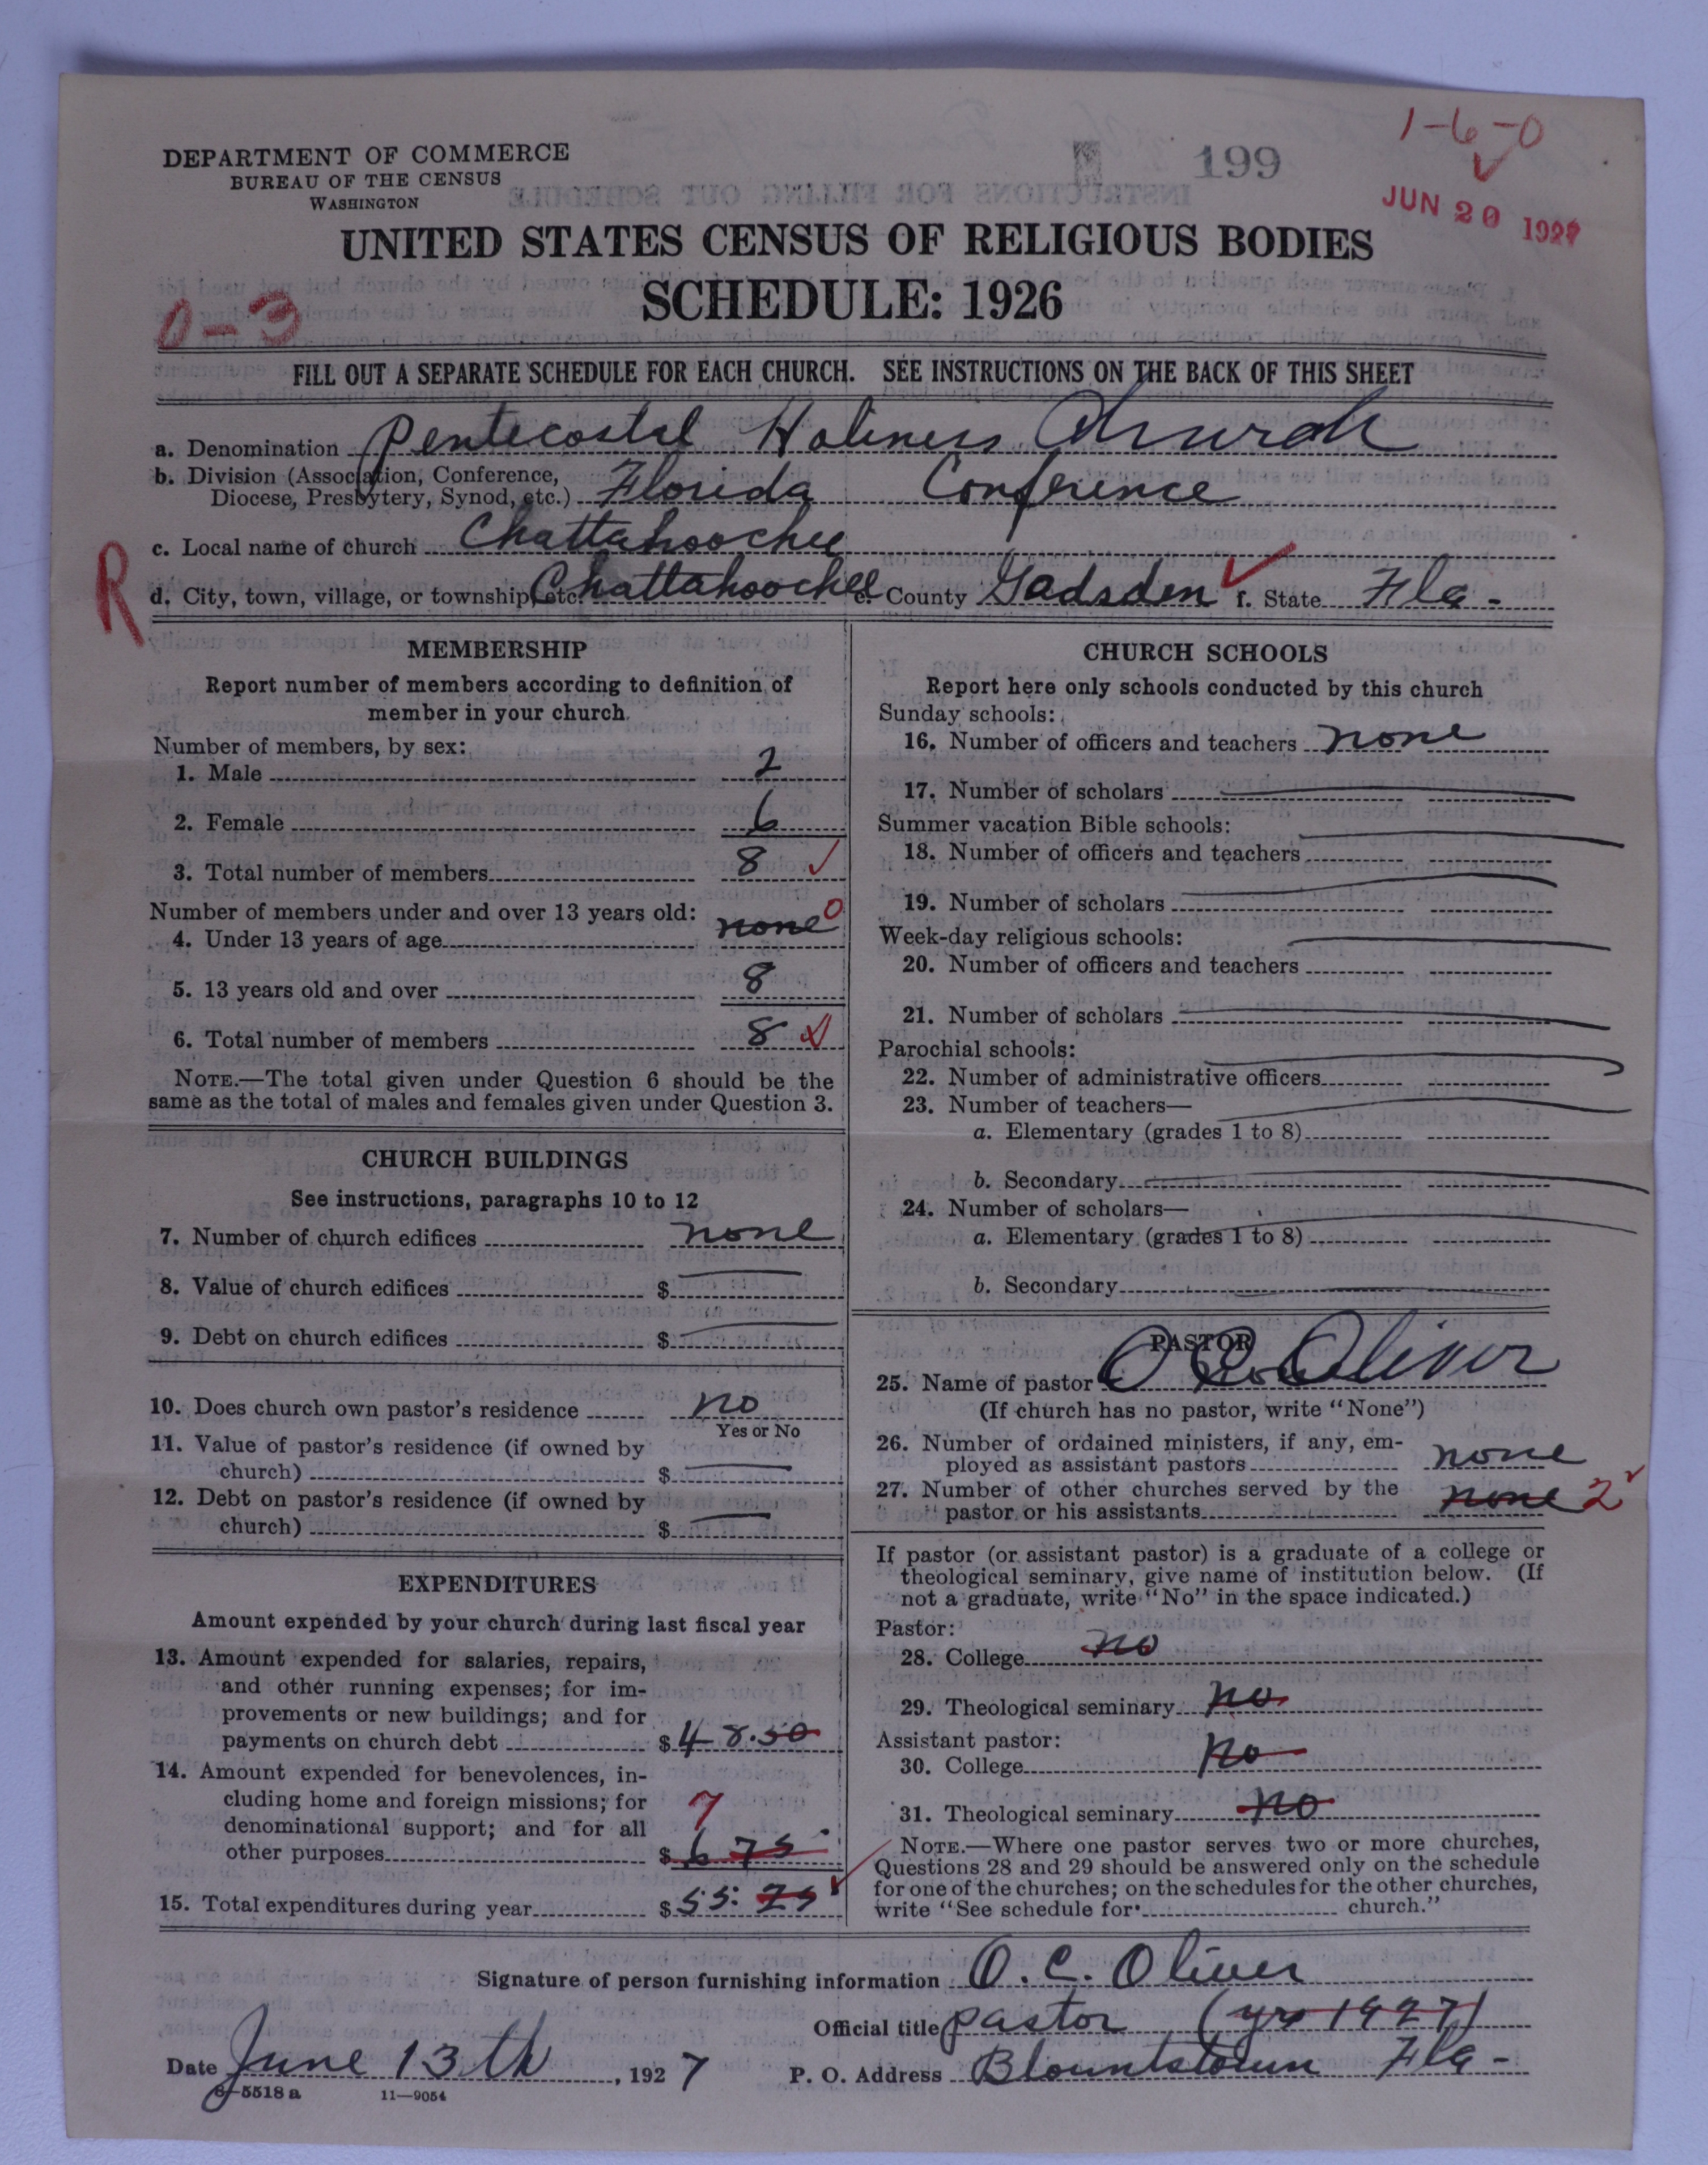 1-6-0
199
DEPARTMENT OF COMMERCE
BUREAU OF THE CENSUS
WASHINGTON
JUN 20 1927
UNITED STATES CENSUS OF RELIGIOUS BODIES
SCHEDULE: 1926
0-3
FILL OUT A SEPARATE SCHEDULE FOR EACH CHURCH. SEE INSTRUCTIONS ON THE BACK OF THIS SHEET
a. Denomination Pentecostal Holiness Church
b. Division (Association, Conference,
Diocese, Presbytery, Synod, etc.) Florida Conference
c. Local name of church Chattahoochee
R
d. City, town, village, or township, etc. Chattahoochee e. County Gadsden f. State Fla-
MEMBERSHIP
Report number of members according to definition of
member in your church
Number of members, by sex:
1. Male 2
2. Female 6
3. Total number of members 8
Number of members under and over 13 years old:
4. Under 13 years of age none 0
5. 13 years old and over 8
6. Total number of members 8
NOTE.—The total given under Question 6 should be the
same as the total of males and females given under Question 3.
CHURCH BUILDINGS
See instructions, paragraphs 10 to 12
7. Number of church edifices none
8. Value of church edifices $
9. Debt on church edifices $
10. Does church own pastor's residence no
Yes or No
11. Value of pastor's residence (if owned by
church) $
12. Debt on pastor's residence (if owned by
church) $
EXPENDITURES
Amount expended by your church during last fiscal year
13. Amount expended for salaries, repairs,
and other running expenses; for im-
provements or new buildings; and for
payments on church debt $ 48.50
14. Amount expended for benevolences, in-
cluding home and foreign missions; for
denominational support; and for all 7
other purposes $ 6 75
15. Total expenditures during year $ 55. 25
CHURCH SCHOOLS
Report here only schools conducted by this church
Sunday schools:
16. Number of officers and teachers none
17. Number of scholars
Summer vacation Bible schools:
18. Number of officers and teachers
19. Number of scholars
Week-day religious schools:
20. Number of officers and teachers
21. Number of scholars
Parochial schools:
22. Number of administrative officers
23. Number of teachers—
a. Elementary (grades 1 to 8)
b. Secondary
24. Number of scholars—
a. Elementary (grades 1 to 8)
b. Secondary
PASTOR
25. Name of pastor O. C. Oliver
(If church has no pastor, write "None")
26. Number of ordained ministers, if any, em-
ployed as assistant pastors none
27. Number of other churches served by the
pastor or his assistants none 2
If pastor (or assistant pastor) is a graduate of a college or
theological seminary, give name of institution below. (If
not a graduate, write "No" in the space indicated.)
Pastor:
28. College no
29. Theological seminary no
Assistant pastor:
30. College no
31. Theological seminary no
NOTE.—Where one pastor serves two or more churches,
Questions 28 and 29 should be answered only on the schedule
for one of the churches; on the schedules for the other churches,
write "See schedule for church."
Signature of person furnishing information O. C. Oliver
Official title pastor (yrs 1927)
Date June 13th, 1927 P. O. Address Blountstown Fla-
8-5518 a 11—9054